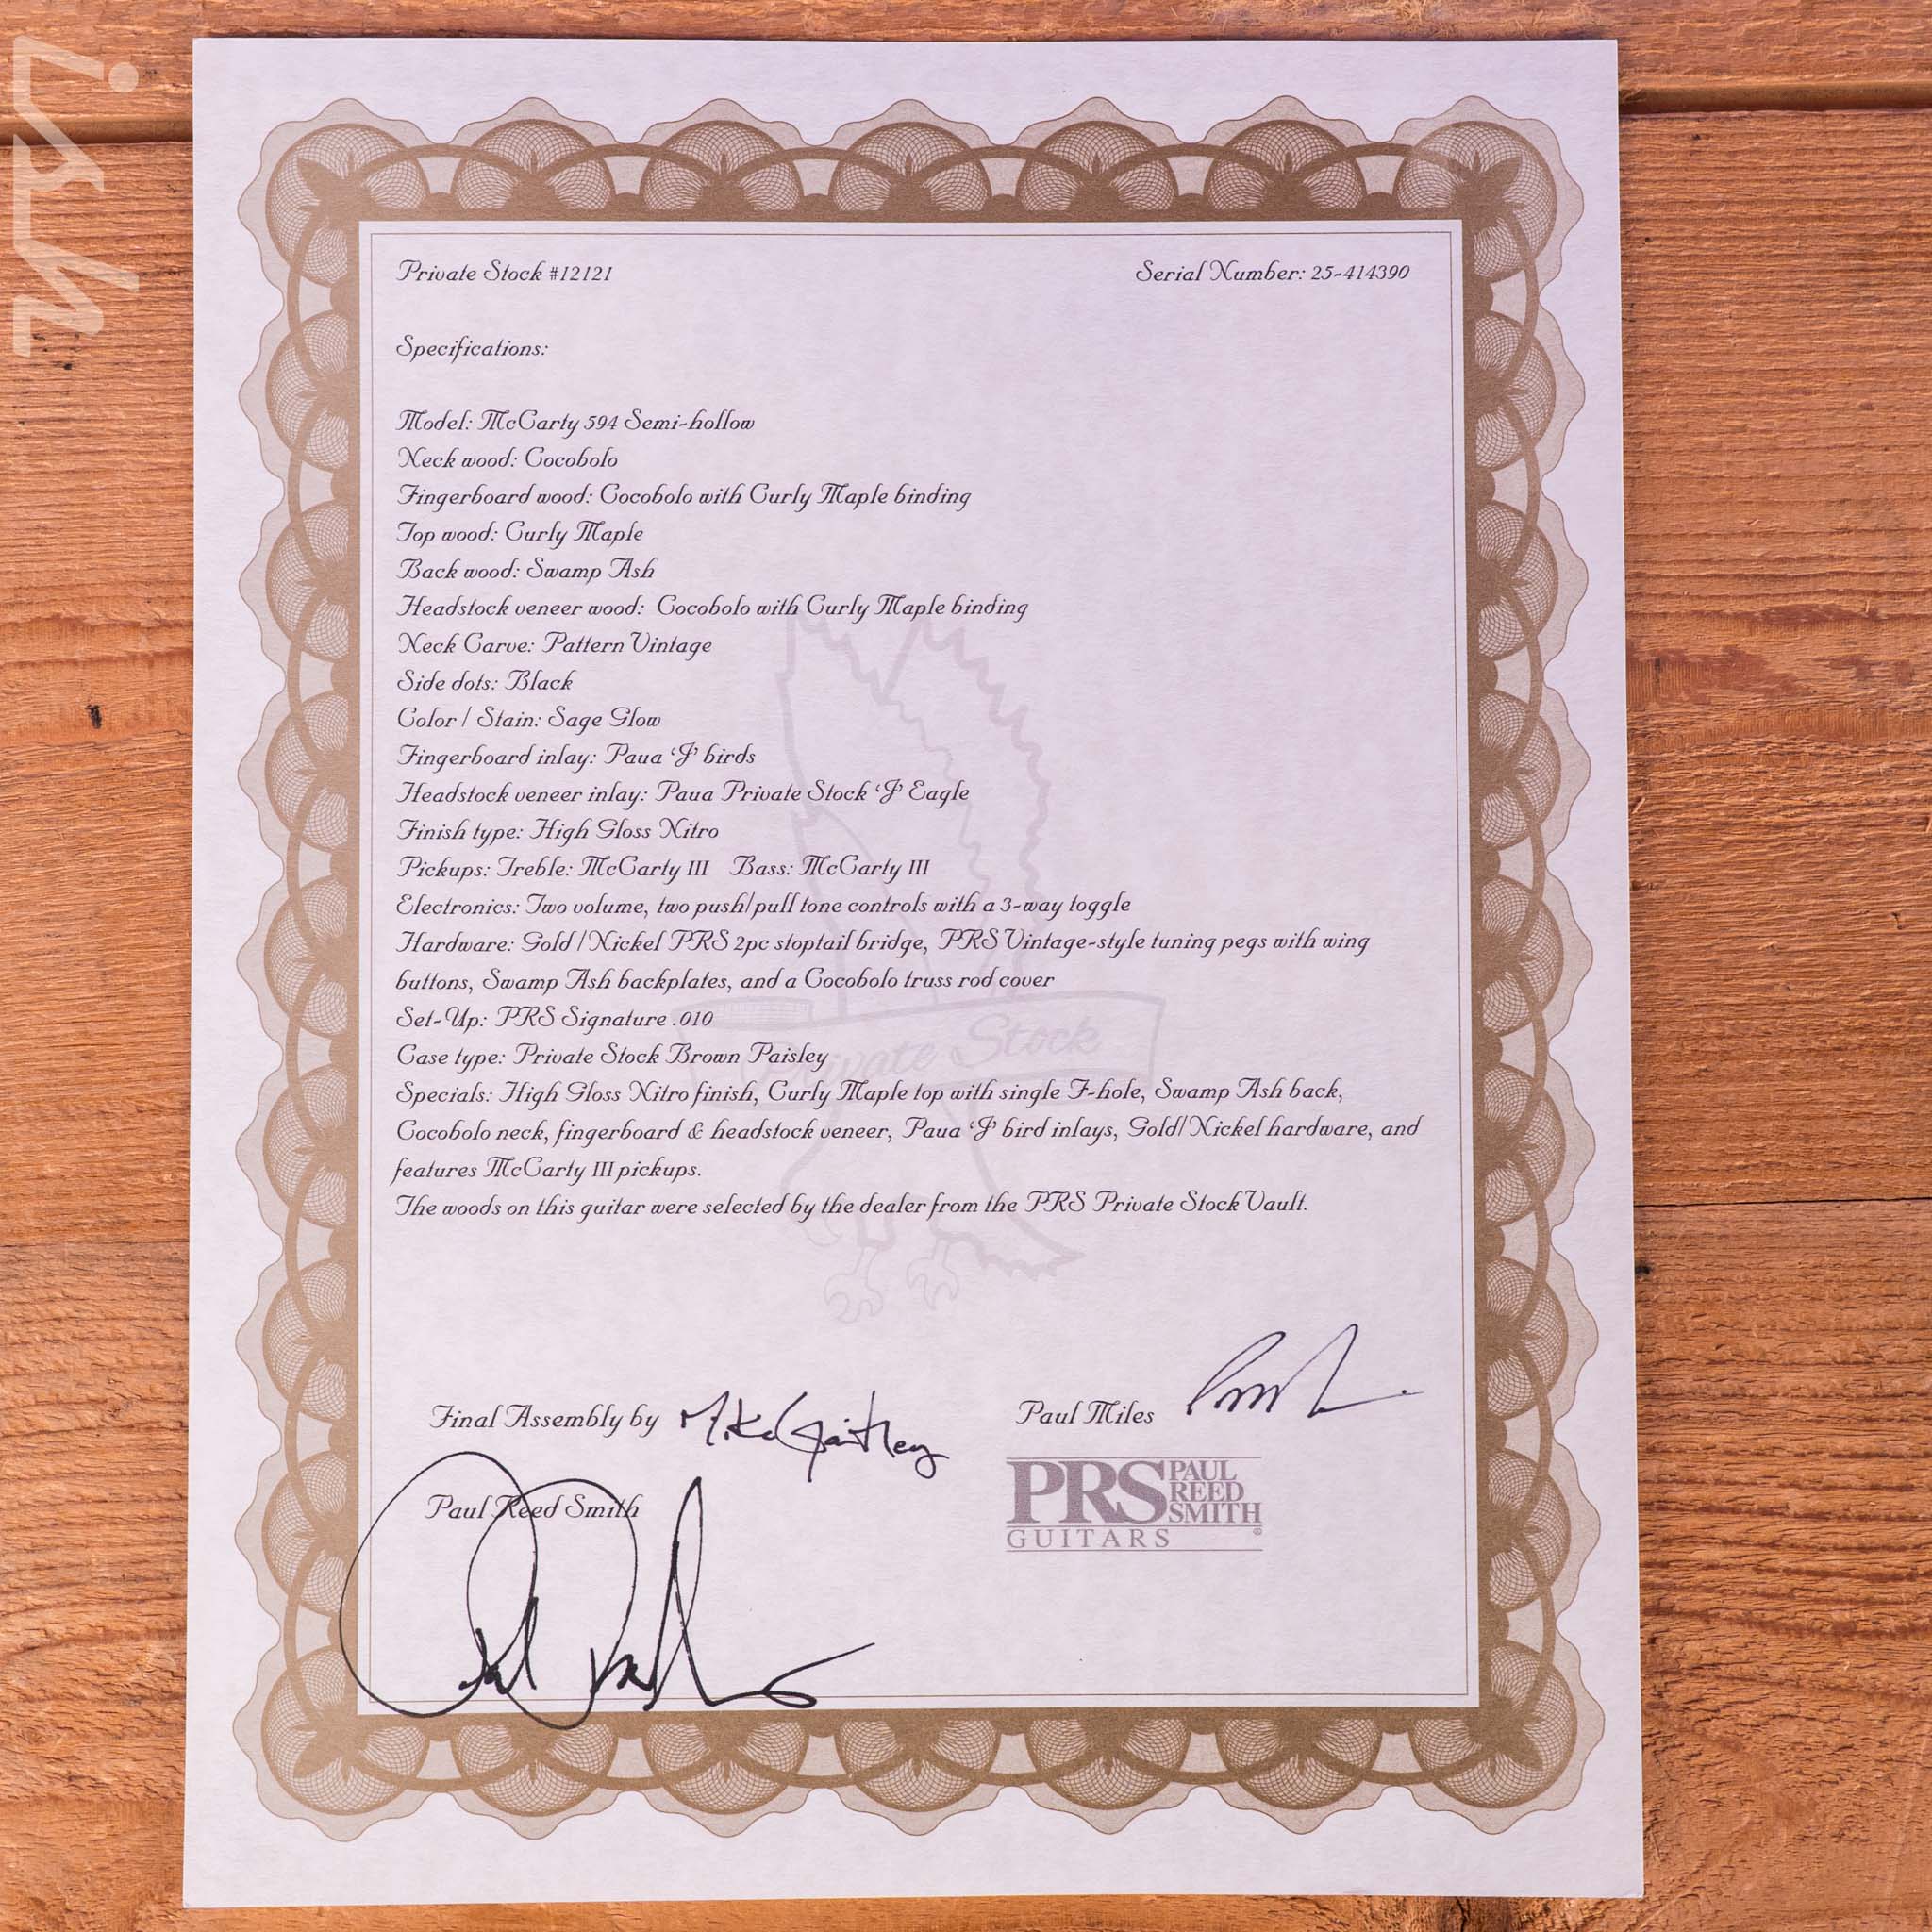 ish
Private Stock #12121
Serial Number: 25-414390
Specifications:
Model: McCarty 594 Semi-hollow
Neck wood: Cocobolo
Fingerboard wood: Cocobolo with Curly Maple binding
Top wood: Curly Maple
Back wood: Swamp Ash
Headstock veneer wood: Cocobolo with Curly Maple binding
Neck Carve: Pattern Vintage
Side dots: Black
Color / Stain: Sage Glow
Fingerboard inlay: Paua ‘J’ birds
Headstock veneer inlay: Paua Private Stock ‘J’ Eagle
Finish type: High Gloss Nitro
Pickups: Treble: McCarty III Bass: McCarty III
Electronics: Two volume, two push/pull tone controls with a 3-way toggle
Hardware: Gold / Nickel PRS 2pc stoptail bridge, PRS Vintage-style tuning pegs with wing
buttons, Swamp Ash backplates, and a Cocobolo truss rod cover
Set-Up: PRS Signature .010
Case type: Private Stock Brown Paisley
Specials: High Gloss Nitro finish, Curly Maple top with single F-hole, Swamp Ash back,
Cocobolo neck, fingerboard & headstock veneer, Paua ‘J’ bird inlays, Gold/Nickel hardware, and
features McCarty III pickups.
The woods on this guitar were selected by the dealer from the PRS Private Stock Vault.
Private Stock
Final Assembly by Mike Gaithey
Paul Miles
Paul Reed Smith
PRS PAUL
REED
SMITH
GUITARS